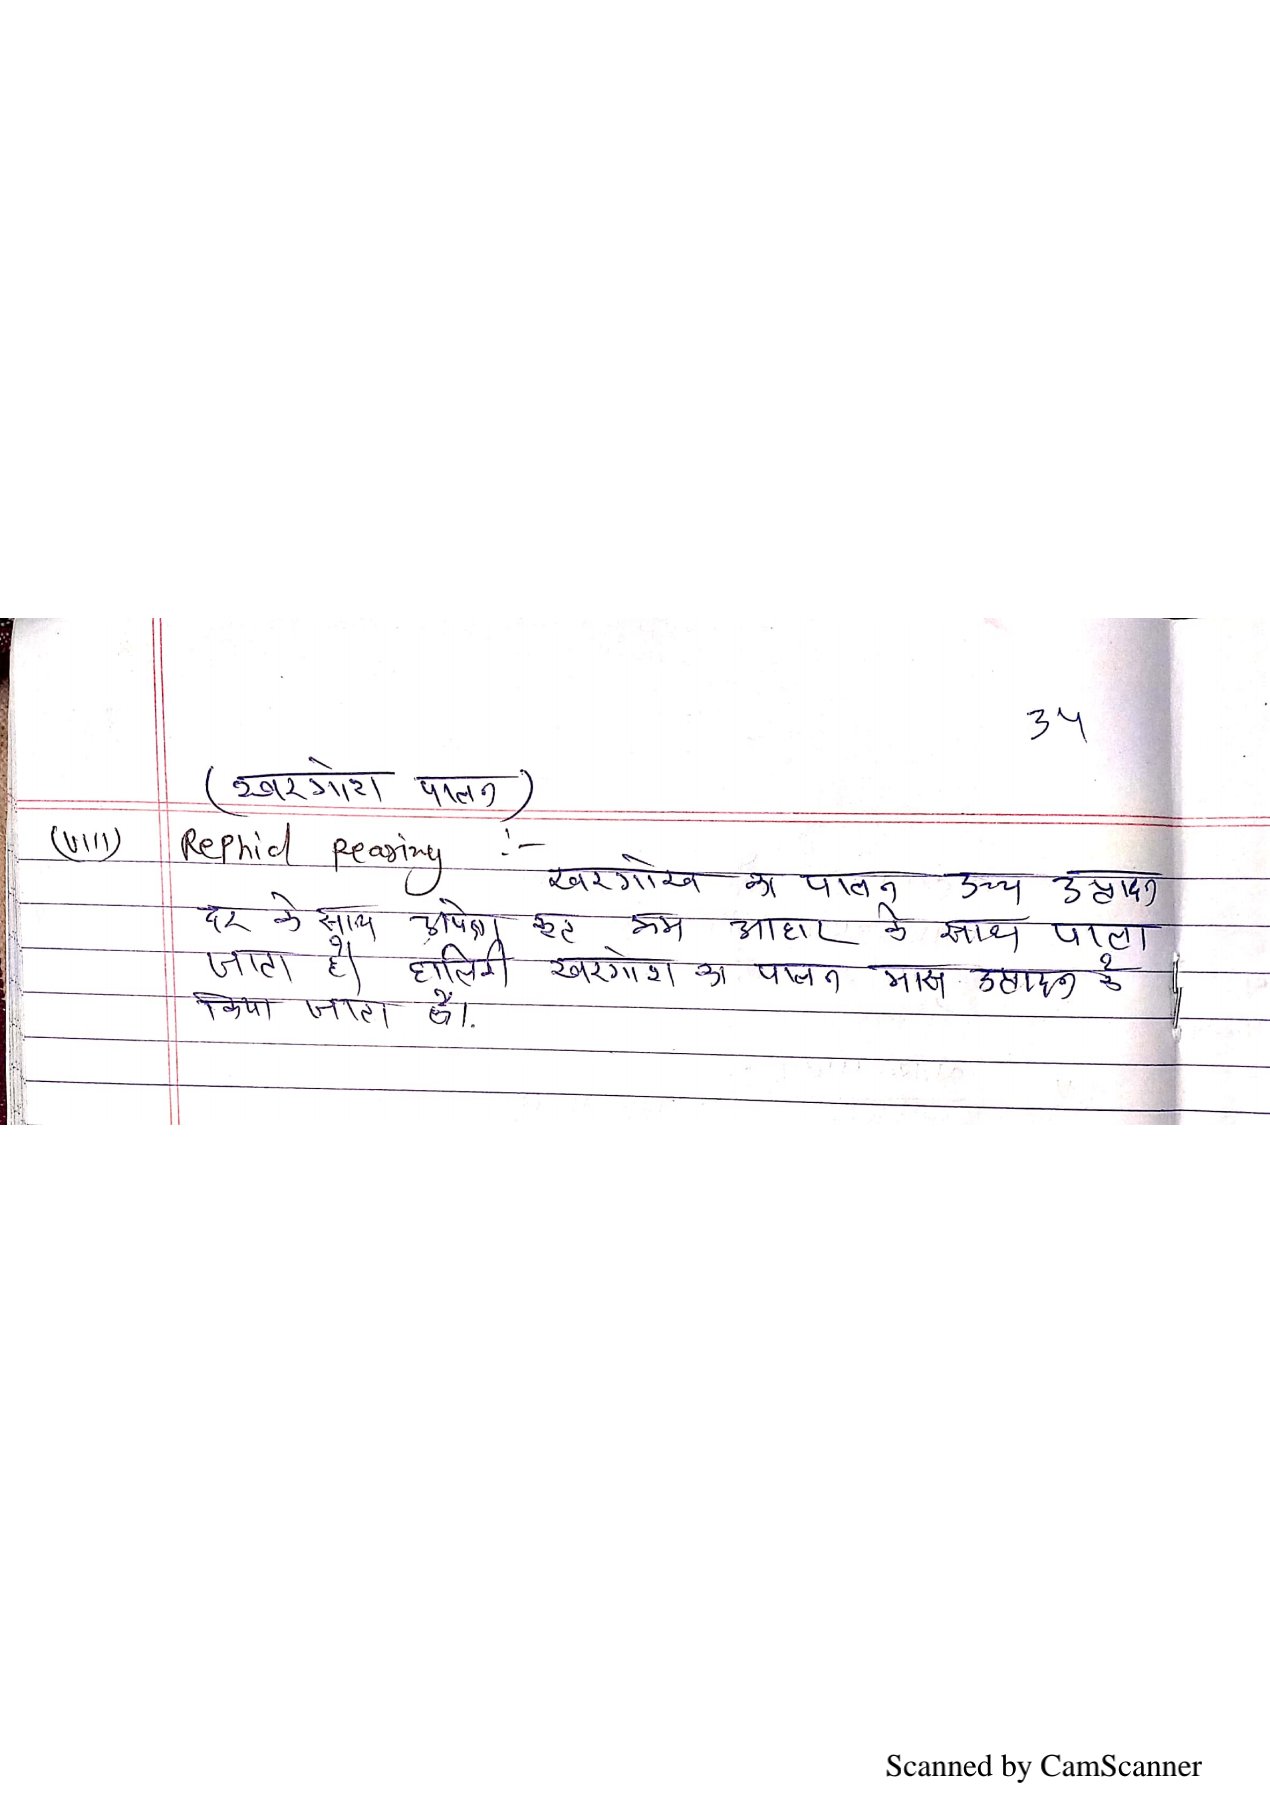 34
(खरगोश पालन)
(VIII) Rephid Rearing :-
खरगोस का पालन उच्य उत्पादन
दर के साथ कम आहार के साथ पाला
जाता है। खरगोश का पालन मास उत्पादन के
किया जाता है।.
Scanned by CamScanner